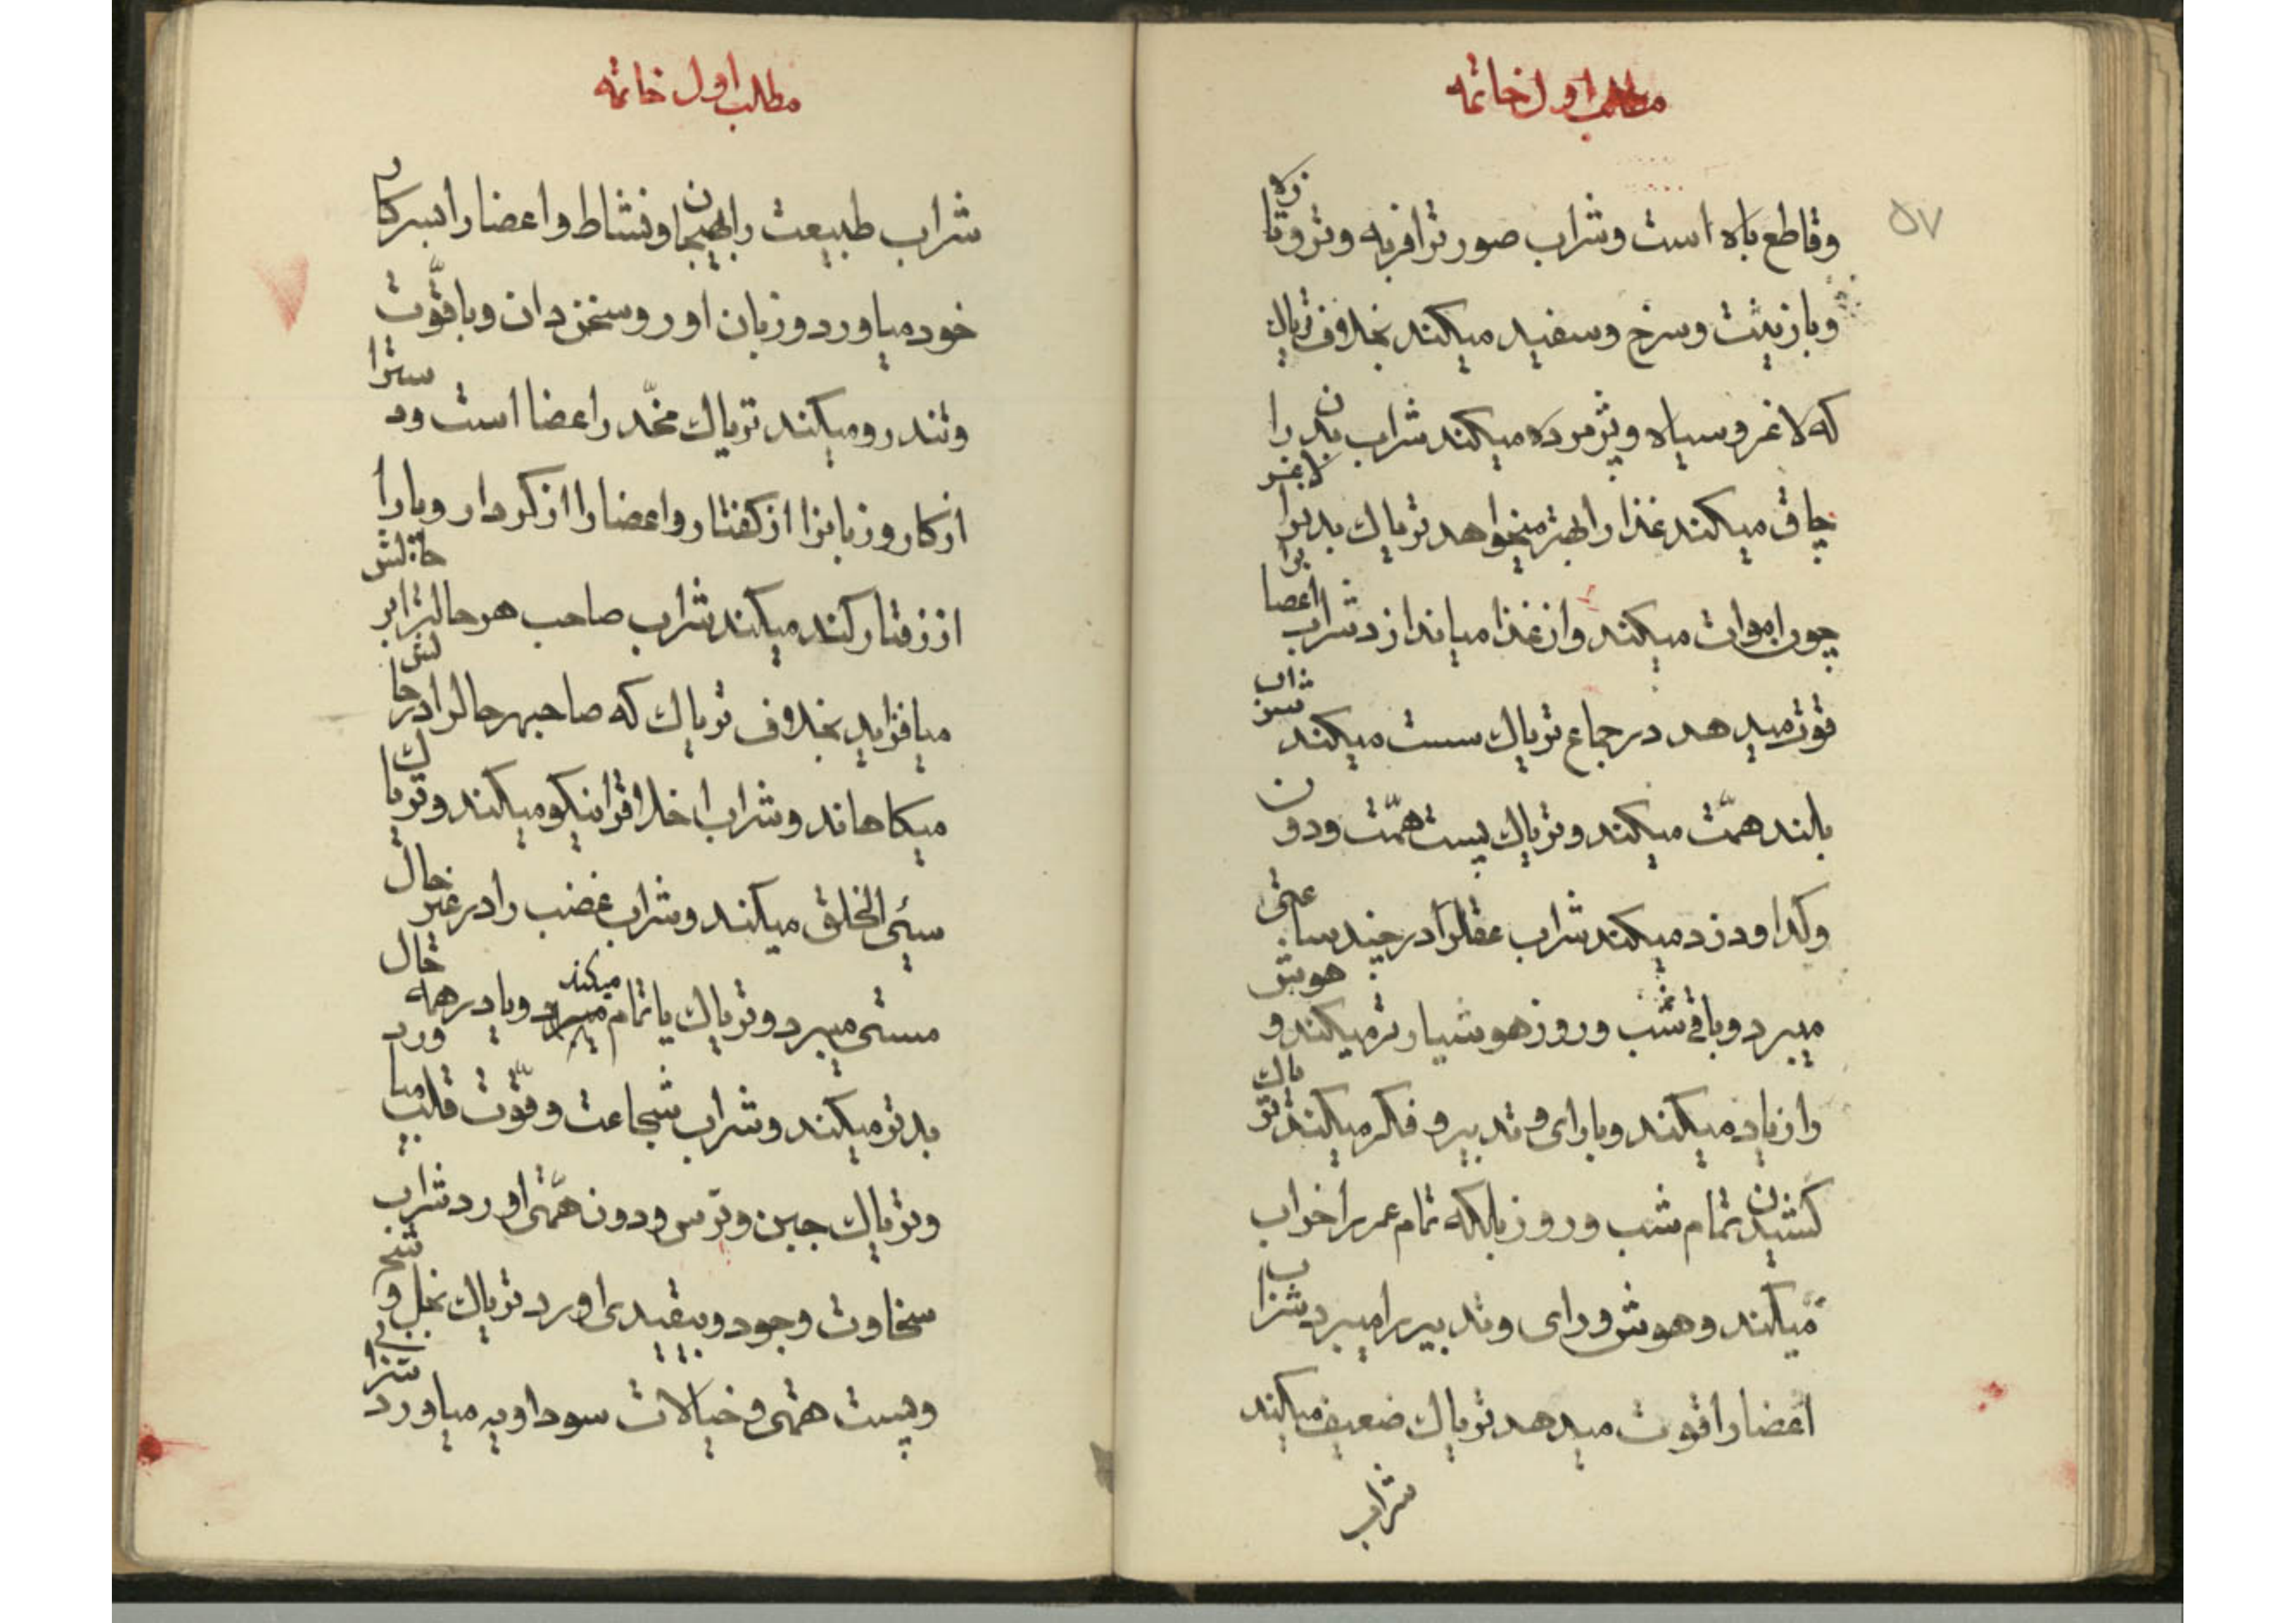 مطلب اول خاتمه
۵۷
وقاطع باه است وشراب صورترا فربه وتر وتازه
وبا زینت وسرخ وسفید میکند بخلاف تریاك
که لاغر وسیاه وپژمرده میکند شراب بدن را
چاق میکند غذا را بهتر میخواهد تریاك بدنرا لاغر
چون اموات میکند واز غذا میاندازد شراب اعضا
قوت میدهد در جماع تریاك سست میکند شراب
بلند همّت میکند وتریاك پست همّت ودون
وکدا ودزد میکند شراب عقلرا در چند ساعتی
میبرد وباقی شب وروز هوشیار تر میکند و هوش
را زیاد میکند وبا رای و تدبیر و فکر میکند تریاك
کشیدن تمام شب وروز بلکه تمام عمر را خراب
میکند وهوش ورای وتدبیر را میبرد شراب
اعضا را قوت میدهد تریاك ضعیف میکند
شراب
مطلب اول خاتمه
شراب طبیعت را بهیجان ونشاط واعضا را بسر کار
خود میاورد وزبان اور وسخن دان وبا قوّت
وتند رو میکند تریاك مخّدر اعضا است ودسترا
از کار وزبانرا از کفتار واعضا را از کردار وپا را
از رفتار کند میکند شراب صاحب هر حالترا بر حالتش
میافزاید بخلاف تریاك که صاحب هر حالرا در حالتش
میکاهاند وشراب اخلاقرا نیکو میکند وتریاك
سیّئ الخلق میکند وشراب غضب را در غیر حال
مستی میبرد وتریاك یا تمام میکند ویا در همه حال
بدتر میکند وشراب شجاعت وقوّت قلب میاورد
وتریاك جبن وترس ودون همّتی اورد شراب
سخاوت وجود وبیقیدی اورد تریاك بخل و
وپست همّتی و خیالات سوداویه میاورد